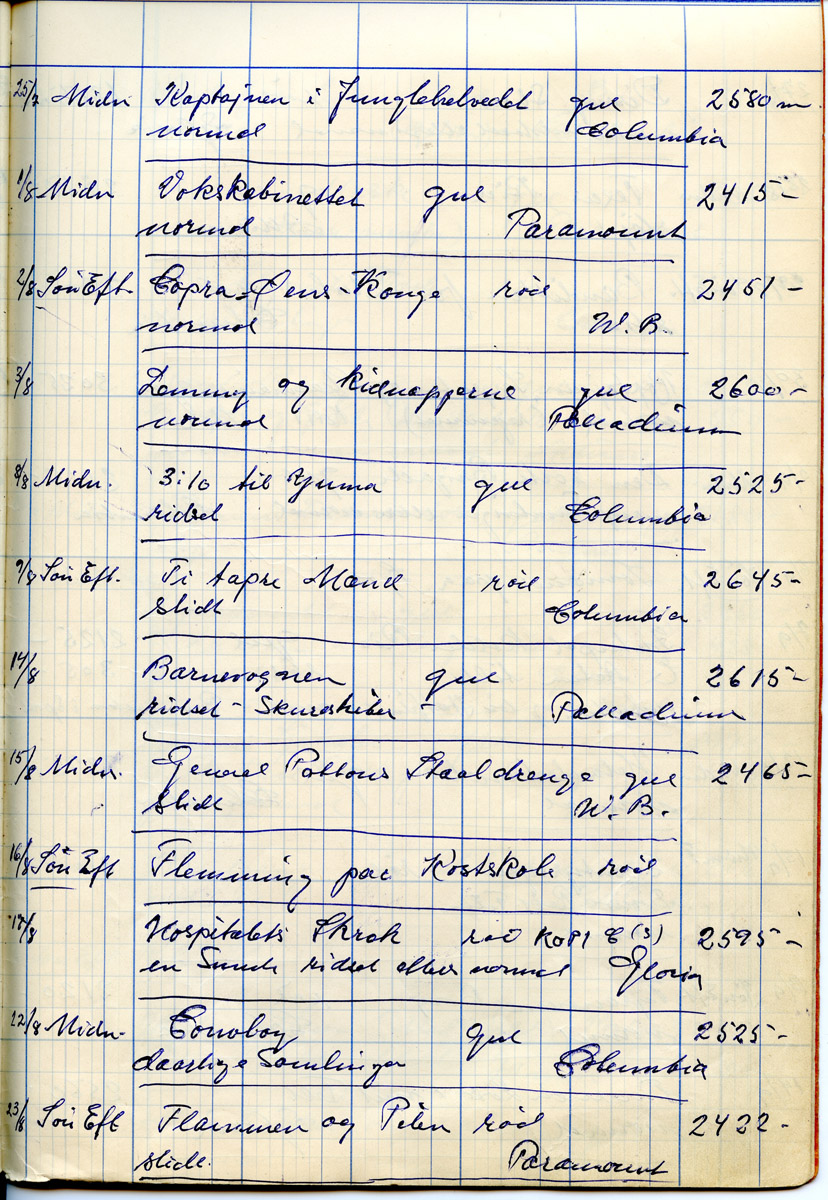 25/7 Midn Kaptajnen i Junglehelvedet gul 2580 m
normal Columbia
1/8 Midn Vokskabinettet gul 2415 -
normal Paramount
2/8 Søn Eft. Copra-Øens-Konge rød 2451 -
normal W.B.
3/8 Lemmy og Kidnapperne gul 2600 -
normal Palladium
8/8 Midn. 3:10 til Yuma gul 2525 -
ridset Columbia
9/8 Søn Eft. Ti tapre Mænd rød 2645 -
slidt Columbia
14/8 Barnevognen gul 2615 -
ridset - Skurestriber - Palladium
15/8 Midn. General Pattons Staaldrenge gul 2465 -
slidt W.B.
16/8 Søn Eft Flemming paa Kostskole rød
17/8 Hospitalets Skræk rød KOPI (3) 2595 -
en ridset ellers normal Gloria
22/8 Midn. Cowboy gul 2525 -
daarlige Samlinger Columbia
23/8 Søn Eft Flammen og Pilen rød 2422 -
slidt. Paramount